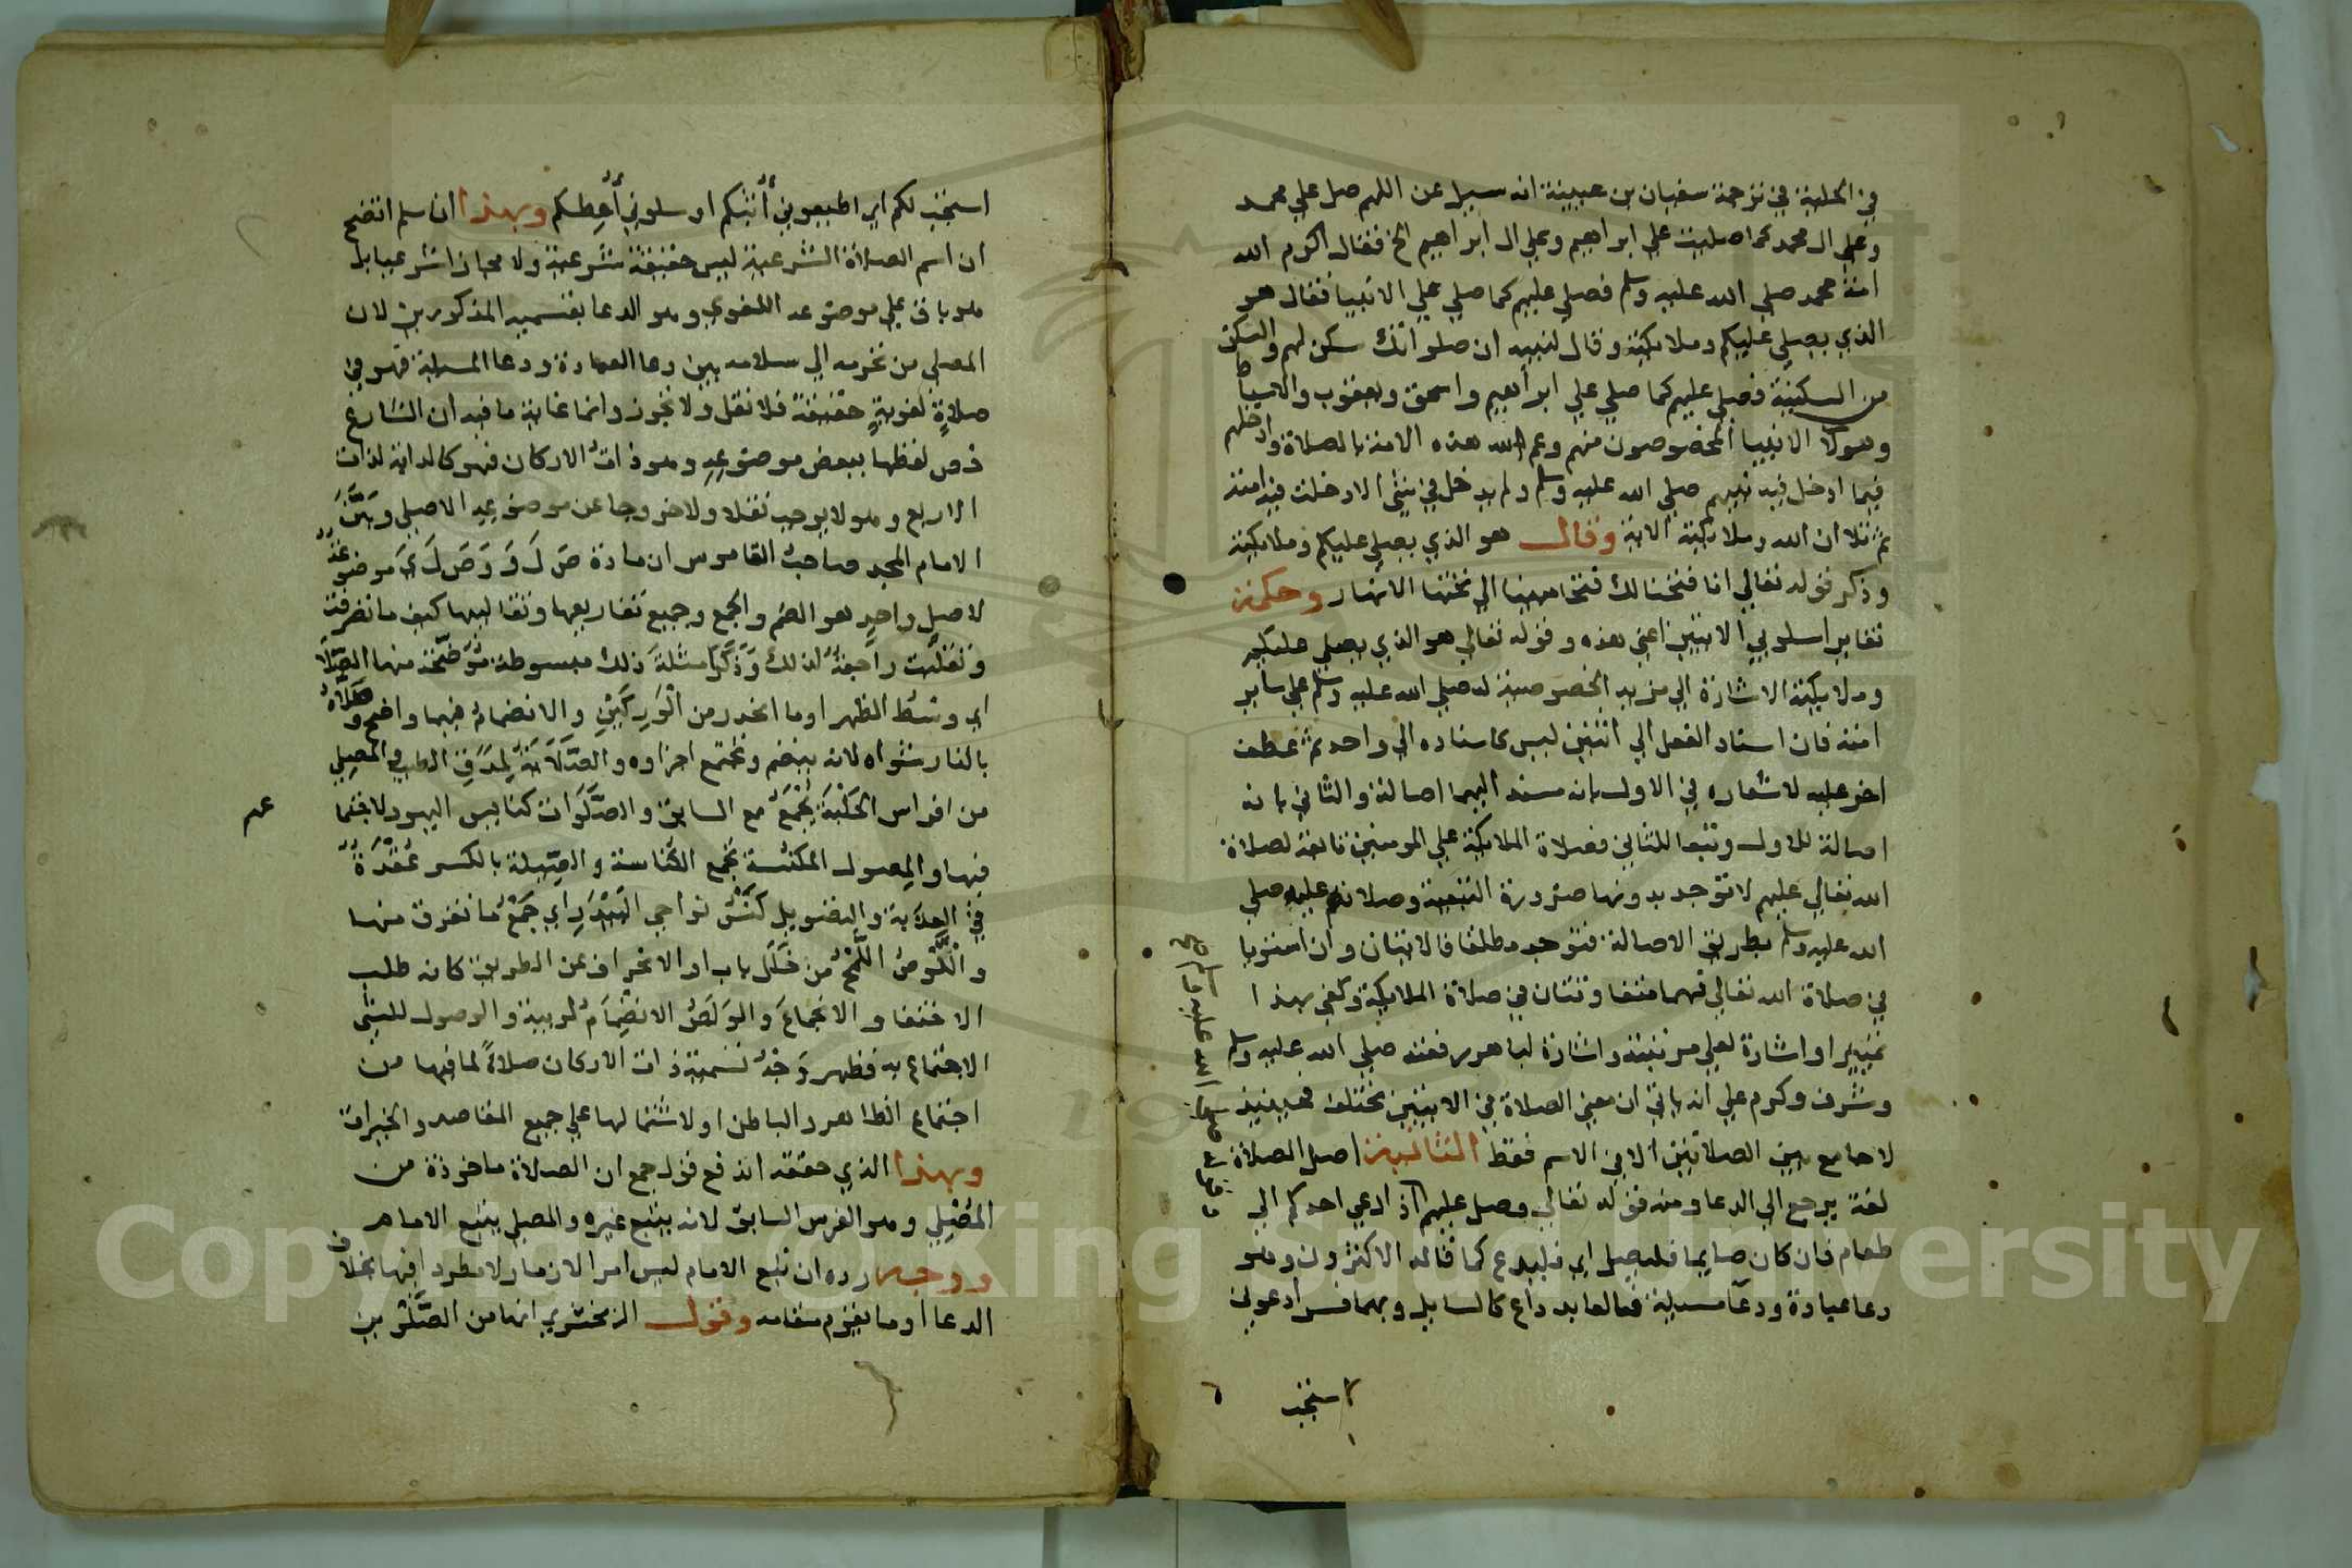 في الحلية في ترجمة سفيان بن عيينة انه سيل عن اللهم صل علي محمد
وعلي ال محمد كما صليت علي ابراهيم وعلي ال ابراهيم الخ فقال اكرم الله
امة محمد صلي الله عليه وسلم فصلي عليهم كما صلي علي الانبيا فقال هو
الذي يصلي عليكم وملايكته وقال لنبيه ان صلواتك سكن لهم والسكن
من السكينة فصلي عليهم كما صلي علي ابراهيم واسحق ويعقوب والاسباط
وهولا الانبيا المخصوصون منهم وعم الله هذه الامة بالصلاة وادخلهم
فيما ادخل فيه نبيهم صلي الله عليه وسلم ولم يدخل في شي الا دخلت فيه امته
ثم تلا ان الله وملايكته الاية وقال هو الذي يصلي عليكم وملايكته
وذكر قوله تعالي انا فتحنا لك فتحا مبينا الي تحتها الانهار وحكمة
تغاير اسلوبي الايتين اعني هذه وقوله تعالي هو الذي يصلي عليكم
وملايكته الاشارة الي مزيد الخصوصية له صلي الله عليه وسلم علي ساير
امته فان اسناد الفعل الي اثنين ليس كاسناده الي واحد ثم عطف
اخر عليه لاشعاره في الاول بانه مسند اليهما اصالة والثاني بانه
اصالة للاول وتبعا للثاني فصلاة الملايكة علي المومنين تابعة لصلاة
الله تعالي عليهم لا توجد بدونها ضرورة التبعية وصلاتهم عليه صلي
الله عليه وسلم بطريق الاصالة فتوجد مطلقا فالايتان وان استويا
في صلاة الله تعالي فهما متفاوتتان في صلاة الملايكة وكفي بهذا
تمييزا واشارة لعلي مرتبته واشارة لباهر رفعته صلي الله عليه وسلم
وشرف وكرم علي انه ياتي ان معني الصلاة في الايتين مختلف فحينيذ
لا جامع بين الصلاتين الا في الاسم فقط الثانية اصل الصلاة
لغة يرجع الي الدعا ومنه قوله تعالي وصل عليهم اذا دعي احدكم الي
طعام فان كان صايما فليصل اي فليدع كما قاله الاكثرون وهو
دعا عبادة ودعا مسيلة فالعابد داع كالسايل وبهما فسر ادعوني
استجب
استجب لكم اي اطيعوني أثبكم او سلوني أعطكم وبهذا ان سلم اتضح
ان اسم الصلاة الشرعية ليس حقيقة شرعية ولا مجازا شرعيا بل
هو باق علي موضوعه اللغوي وهو الدعا بقسميه المذكورين لان
المصلي من تحرمه الي سلامه بين دعا العبادة ودعا المسيلة فهو في
صلاةٍ لغويةٍ حقيقة فلا نقل ولا تجوز وانما غاية ما فيه ان الشارع
خص لفظها ببعض موضوعه وهو ذات الاركان فهو كالدابة لذات
الاربع وهو لا يوجب نقلا ولا خروجا عن موضوعه الاصلي وبيَّن
الامام المجد صاحب القاموس ان مادة صَ لَ وَ وَصَ لَ يَ موضوعة
لاصلٍ واحدٍ هو الضم والجمع وجميع تفاريعها وتقاليبها كيف ما تصرفت
وتقلبت راجعة لذلك وذكر امثلة ذلك مبسوطة موضحة منها الصَّلَا
اي وسَط الظهر او ما انحدر من الوركين والانضمام فيهما واضح وصَلَاهُ
بالنار شواه لانه ينضم وتجتمع اجزاوه والصَّلَايَة لمدق الطيب والمصلي
من افراس الحلبة يجمع مع السابق والصَّلَوات كنايس اليهود لاجتما
عهم
فيها والمصول المكنسة تجمع الكناسة والصيلة بالكسر عقدة
في العذبة والتصويل كنس نواحي البيدر اي جمع ما تفرق منها
واللَّوصُ اللمح من خلل باب او الانحراف عن الطريق كانه طلب
الاختفا والانجماع والوَلصُ الانضمام لريبة والوصول للشي
الاجتماع به فظهر وجه تسمية ذات الاركان صلاةً لما فيها من
اجتماع الظاهر والباطن او لاشتمالها علي جميع المقاصد والخيرات
وبهذا الذي حققه اندفع قول جمع ان الصلاة ماخوذة من
المصلي وهو الفرس السابق لانه يتبع غيره والمصلي يتبع الامام
ووجه رده ان تبع الامام ليس امرا لازما ولا مطردا فيها بخلاف
الدعا او ما يقوم مقامه وقول الزمخشري انها من الصَّلَوين